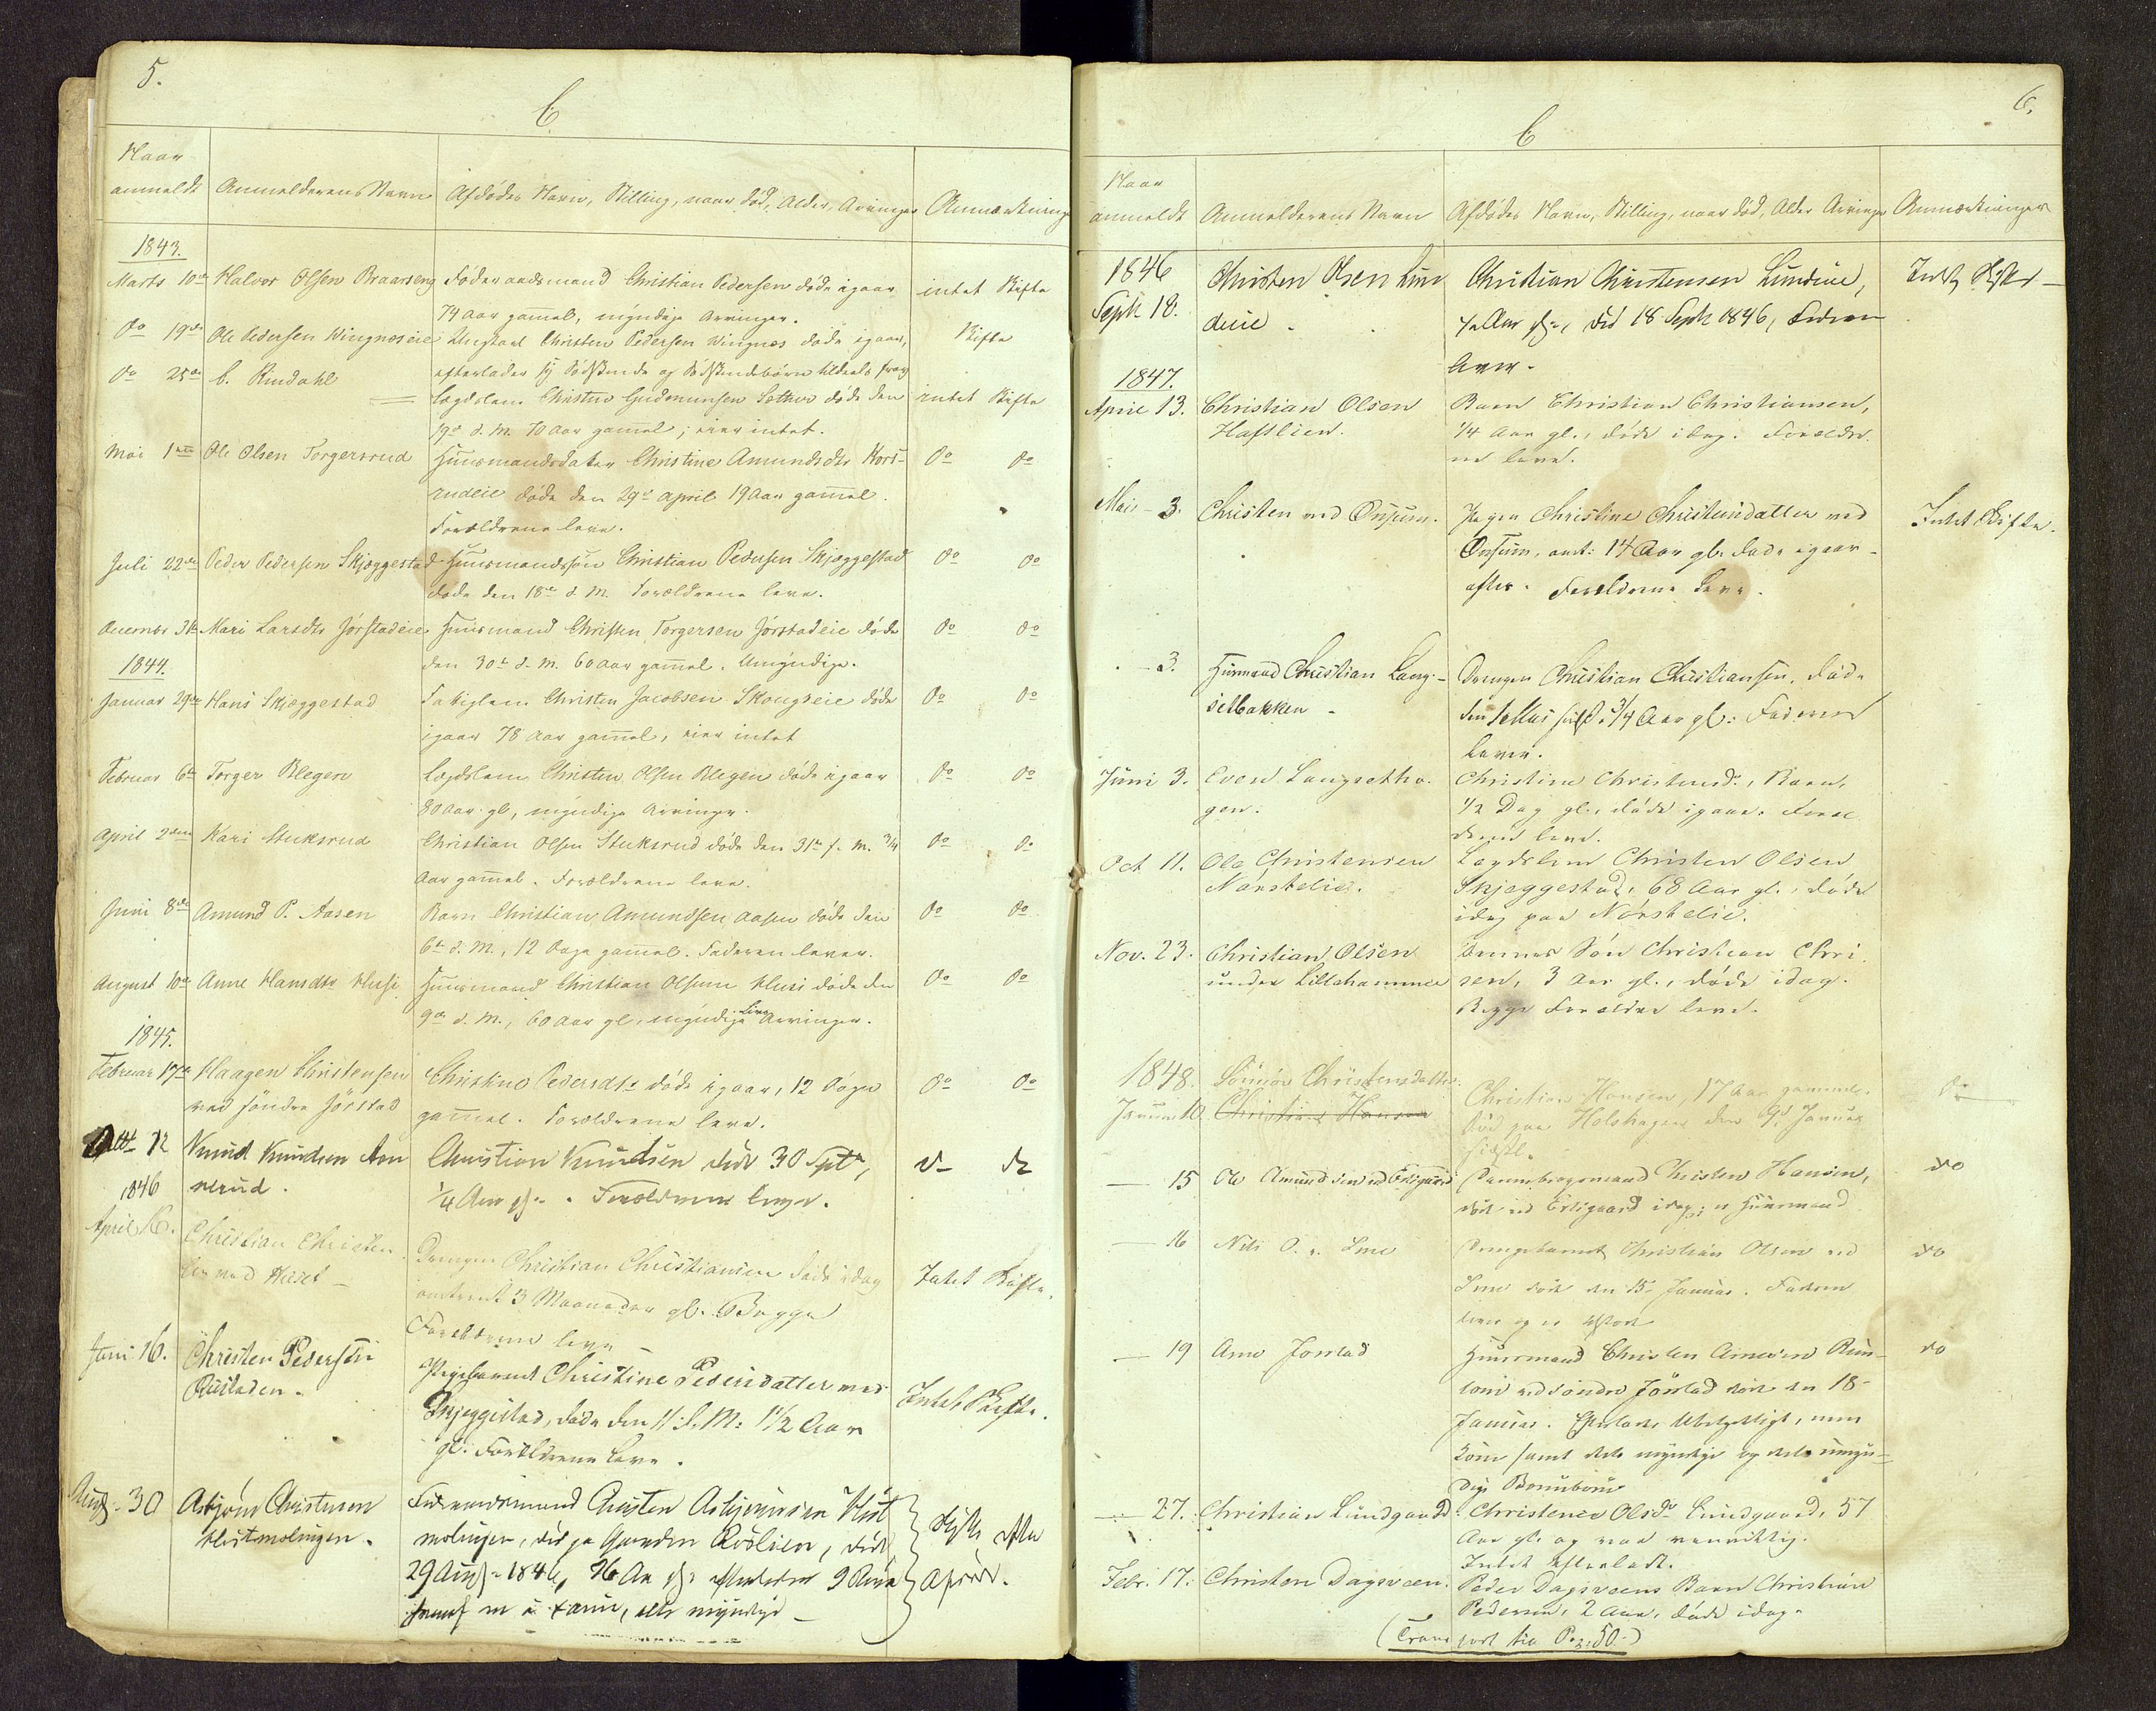 5.
C
Naar
anmeldt Anmelderens Navn Afdødes Navn, Stilling, naar død, Alder, Arvinger Anmærkninger
1843.
Marts 10de Halvor Olsen Braarseng Føderaadsmand Christian Pedersen døde igaar intet Skifte
74 Aar gammel, myndige Arvinger.
do 19de Ole Pedersen Wingneseie Ungkarl Christen Pedersen Wingnes døde igaar, Skifte
efterlader sig Sødskende og Sødskendebørn tildeels frav
do 25de C. Rindahl Lægdslem Christine Gudmunsen Sether døde den intet Skifte
19de d. M. 70 Aar gammel; eier intet.
Mai 1ste Ole Olsen Torgersrud Huusmandsdatter Christine Amundsdtr Kors- do do
rudeie døde den 29de April 19 Aar gammel.
Forældrene leve.
Juli 22de Peder Pedersen Skjæggestad Huusmandssøn Christian Pedersen Skjæggestad do do
døde den 18de d. M. Forældrene leve.
December 31te Mari Larsdtr Jørstadeie Huusmand Christen Torgersen Jørstadeie døde do do
den 30te d. M. 60 Aar gammel. Umyndige.
1844.
Januar 29de Hans Skjæggestad Fattiglem Christen Jacobsen Skougseie døde do do
igaar 78 Aar gammel, eier intet
Februar 6te Torger Blegen Lægdslem Christen Olsen Blegen døde igaar do do
80 Aar gl, myndige Arvinger.
April 2den Kari Stuksrud Christian Olsen Stuksrud døde den 31te f. M. 3/4 do do
Aar gammel. Forældrene leve.
Juni 8de Amund P. Aasen Barn Christian Amundsen Aasen døde den do do
6te d. M., 12 Dage gammel. Faderen lever.
August 10de Anne Hansdtr Husi Huusmand Christian Olsen Husi døde den do do
9de d. M., 60 Aar gl, myndige Livs Arvinger.
1845.
Februar 17de Haagen Christensen Christine Pedersdtr døde igaar, 12 Dage do do
ved søndre Jørstad gammel. Forældrene leve.
Octbr 12 Knud Knudsen Aan Christian Knudsen død 30 Septr,
1846 nerud. 1/4 Aar gl. Forældrene lever.
April 16. Christian Christen Drengen Christian Christiansen døde idag Intet Skifte.
sen ved Huset omtrent 3 Maaneder gl. Begge
Forældrene leve
Juni 16. Christen Pedersen Pigebarnet Christine Pedersdatter ved Intet Skifte.
Rustaden. Skjeggestad, døde den 11 d. M: 1 1/2 Aar
gl. Forældrene Leve.
Aug. 30 Asbjørn Christensen Føderaadsmand Christen Asbjørnsen Hist Skifte efter
Histmolingen. molingen, død paa Gaarden Roslien, død
29 Aug. 1846, 76 Aar gl.
6.
C
Naar
anmeldt Anmelderens Navn Afdødes Navn, Stilling, naar død, Alder Arvinger Anmærkninger
1846 Christen Olsen Lun Christian Christensen Lundeie, Intet Skifte
Septr 18. deie. Aar gl., død 18 Septr 1846, Faderen
lever.
1847.
April 13. Christian Olsen Barn Christian Christiansen,
Haftlien. 1/4 Aar gl., døde idag. Forældre
ne leve.
Mai 3. Christen ved Onsum. Pigen Christine Christensdatter ved Intet Skifte.
Onsum, omt: 14 Aar gl. døde igaar
aftes. Forældrene Leve.
3. Huusmand Christian Lang- Drengen Christian Christiansen, døde
setbakken. den 1 Mai 3/4 Aar gl: Faderen
Lever.
Juni 3. Even Langsetha Christine Christensd., Barn,
gen. 1/2 Dag gl., døde igaar. Foræl
drene leve.
Oct 11. Ole Christensen Lægdslem Christen Olsen
Nørstelie. Skjeggestad, 68 Aar gl., døde
idag paa Nørstelie.
Nov. 23. Christian Olsen Søn Christian Chri
under Lillehammer sen, 3 Aar gl., døde idag.
Begge Forældre leve.
1848. Christensdatter Christian Hansen, 17 Aar gammel. do
Januar 10. Christian Hansen død paa Holshagen den 9. Januar
sidstl.
15 Ole Amundsen Danebrogsmand Christen Hansen, do
død idag; Huusmand
16 Nils O. Drengebarnet Christian Olsen ved do
døde den 15. Januar. Faderen
lever
19 Arne Jørstad Huusmand Christen Arnesen do
ved søndre Jørstad døde den 18
Januar. Efterlader Ubetydeligt, men
Kone samt dels myndige og dels umyn-
dige Børnebørn
27. Christian Lundgaard Christence Olsdr Lundgaard, 57
Aar gl. og var vanvittig.
Intet efterladt.
Febr. 17. Christen Dagsveen. Peder Dagsveens Barn Christian
Pedersen, 2 Aar, døde idag.
(Transport til Pag: 50.)